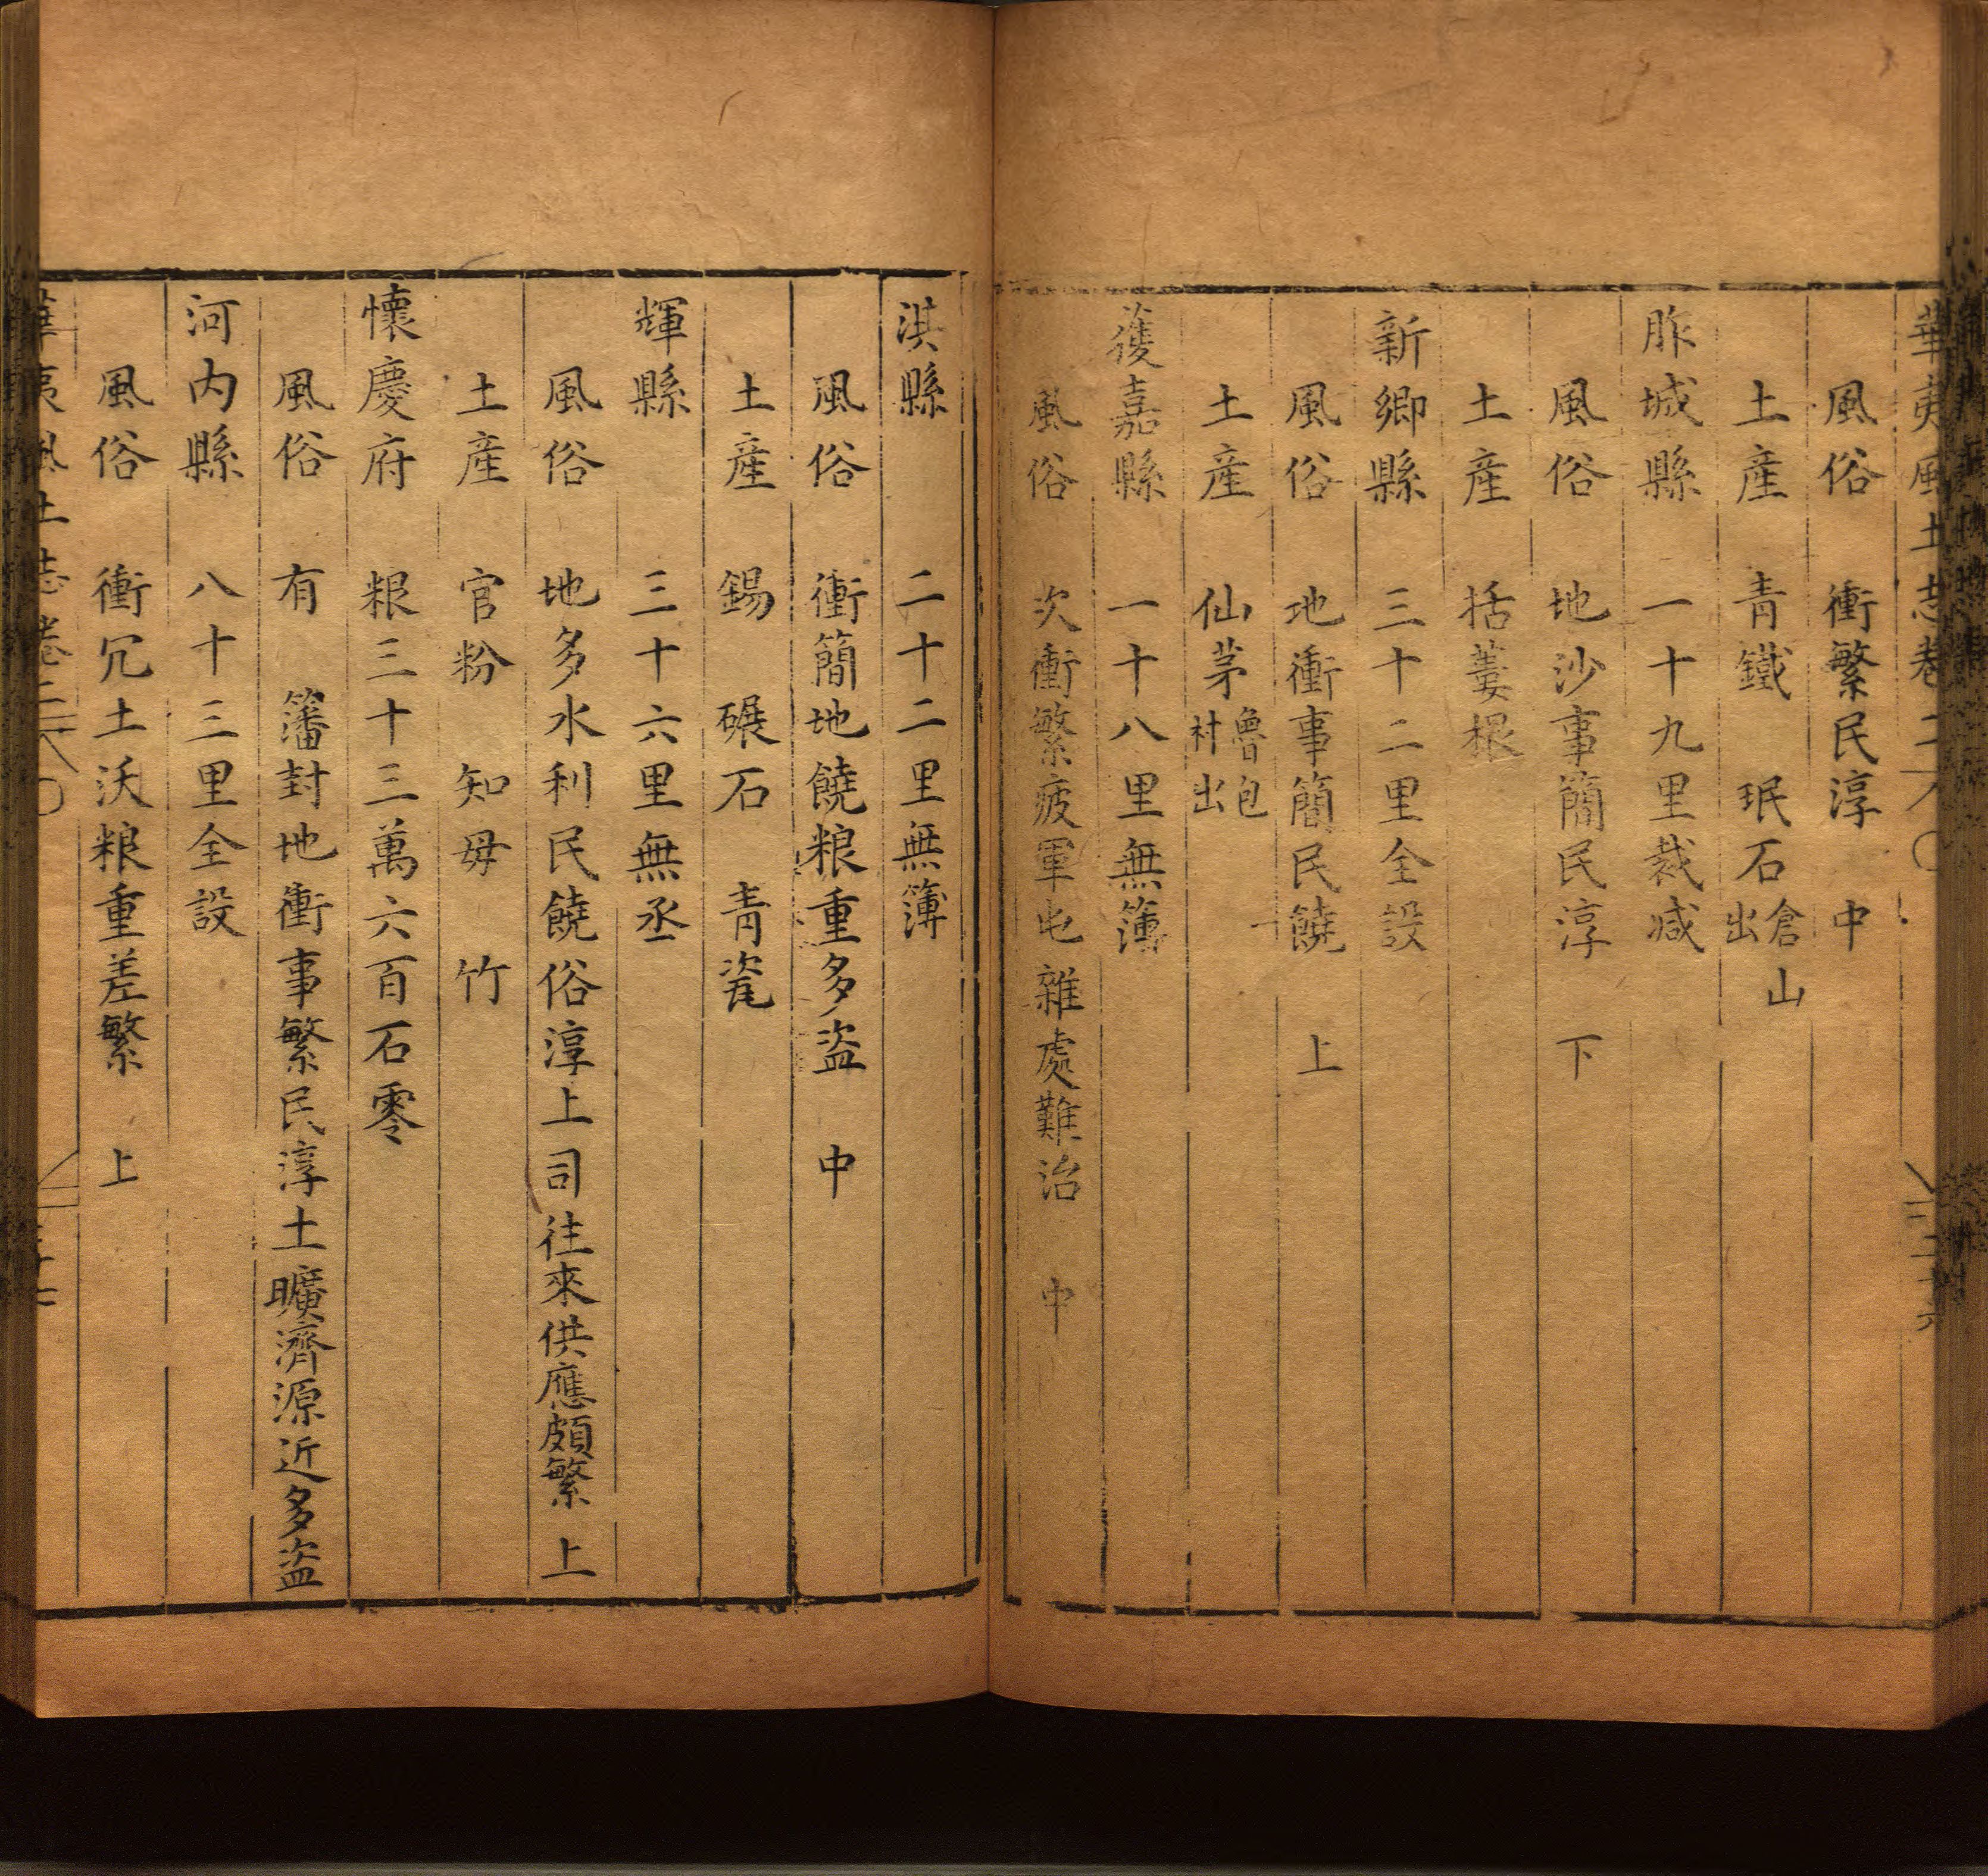 華夷風土志卷二　二十六
風俗　衝繁民淳　中
土產　青鐵　珉石倉山出
胙城縣　一十九里裁減
風俗　地沙事簡民淳　下
土產　括蔞根
新鄉縣　三十二里全設
風俗　地衝事簡民饒　上
土產　仙茅魯包村出
獲嘉縣　一十八里無簿
風俗　次衝繁疲軍屯雜處難治　中
淇縣　二十二里無簿
風俗　衝簡地饒粮重多盜　中
土產　錫　碾石　青瓷
輝縣　三十六里無丞
風俗　地多水利民饒俗淳上司往來供應頗繁　上
土產　官粉　知毋　竹
懷慶府　粮三十三萬六百石零
風俗　有　籓封地衝事繁民淳土曠濟源近多盜
河內縣　八十三里全設
風俗　衝冗土沃粮重差繁　上
華夷風土志卷二